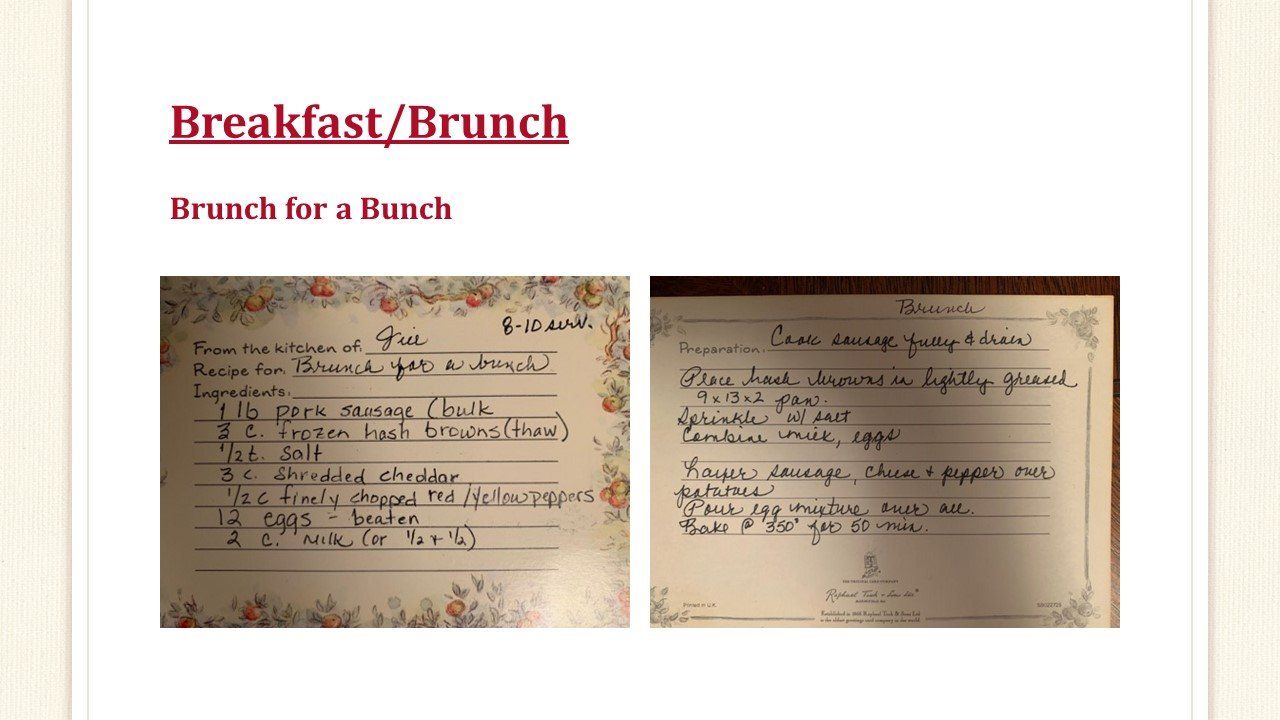 Breakfast/Brunch
Brunch for a Bunch
8-10 serv.
From the kitchen of:
Recipe for: Brunch for a bunch
Ingredients:
1 lb pork sausage (bulk
3 c. frozen hash browns (thaw)
1/2 t. salt
3 c. shredded cheddar
1/2 c finely chopped red/yellow peppers
12 eggs - beaten
2 c. milk (or 1/2 + 1/2)
Brunch
Preparation: Cook sausage fully & drain
Place hash browns in lightly greased
9 x 13 x 2 pan.
Sprinkle w/ salt
Combine milk, eggs
Layer sausage, cheese + pepper over
potatoes
Pour egg mixture over all.
Bake @ 350° for 50 min.
THE ORIGINAL CARD COMPANY
Raphael Tuck & Sons Ltd.®
Printed in U.K.
Established in 1866 Raphael Tuck & Sons Ltd
is the oldest greetings card company in the world.